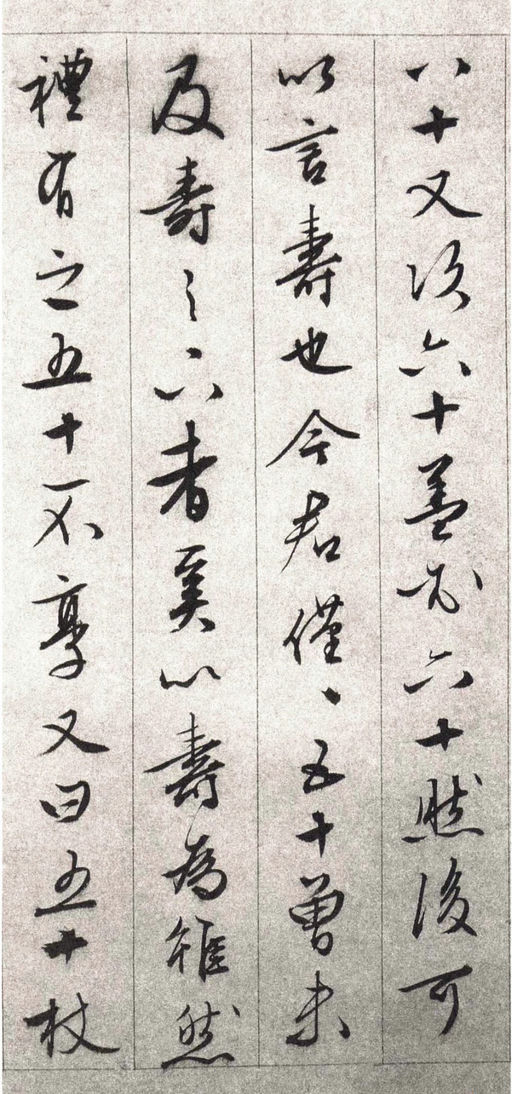 八十又次六十蓋六十然後可
以言壽也今君僅僅五十曾未
及壽之下者奚以壽為雖然
禮有之五十不享又曰五十杖